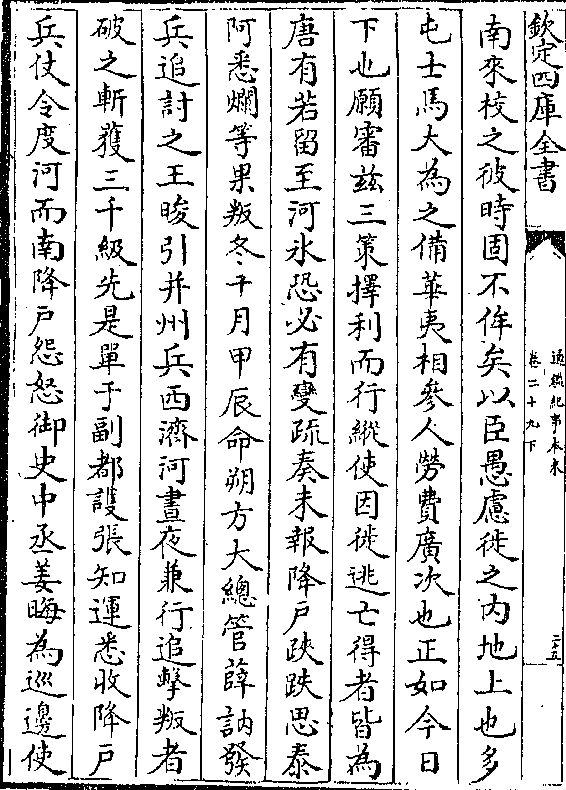 欽定四庫全書
通鑑紀事本末
卷二十九下
二十五
南來校之彼時固不侔矣以臣愚慮徙之内地上也多
屯士馬大為之備華夷相參人勞費廣次也正如今日
下也願審兹三策擇利而行縱使因徙逃亡得者皆為
唐有若留至河氷恐必有變疏奏未報降户䟤跌思泰
阿悉爛等果叛冬十月甲辰命朔方大總管薛訥發
兵追討之王晙引并州兵西濟河晝夜兼行追擊叛者
破之斬獲三千級先是單于副都護張知運悉收降户
兵仗令度河而南降户怨怒御史中丞姜晦為巡邊使